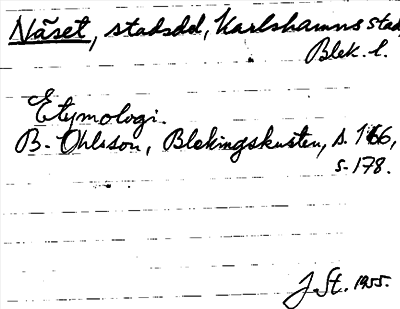 Näset, stadsdel, Karlshamns stad,
Blek. l.
Etymologi.
B. Ohlsson, Blekingskusten, s. 166,
s. 178.
J. St. 1955.